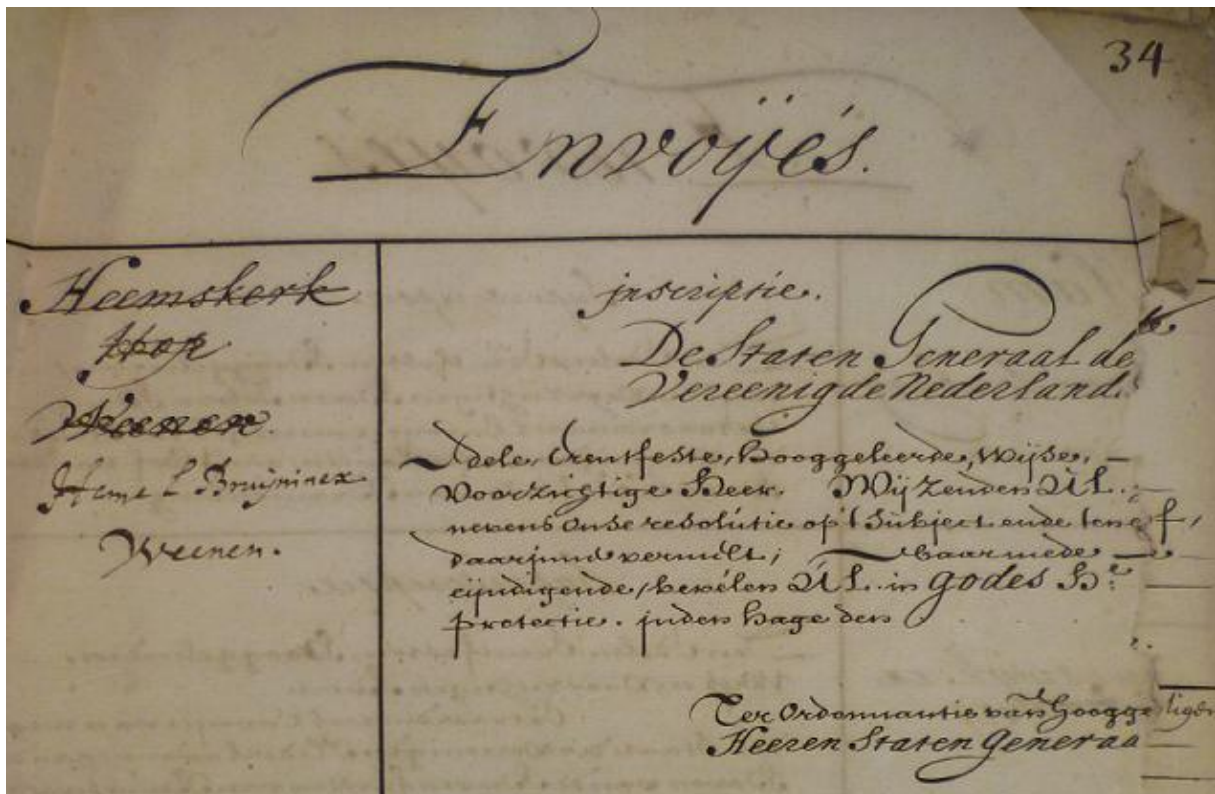 34
Envoijés.
Heemskerk
Hop
Weenen.
Heme L Bruijninex
Weenen.
jnscriptie.
De Staten Generaal de
Vereenigde Nederland.
Edele, Erentfeste, Hooggeleerde, Wijse,
Voorzichtige Heer. Wij Zenden Ú L.
nevens onse resolutie op 't Subject ende ten
daarjnne vermelt; Waarmede
eijndigende, bevélen Ú L. in godes H.
protectie. jnden Hage den
Ter Ordonnantie van hoogge
Heeren Staten Generaa